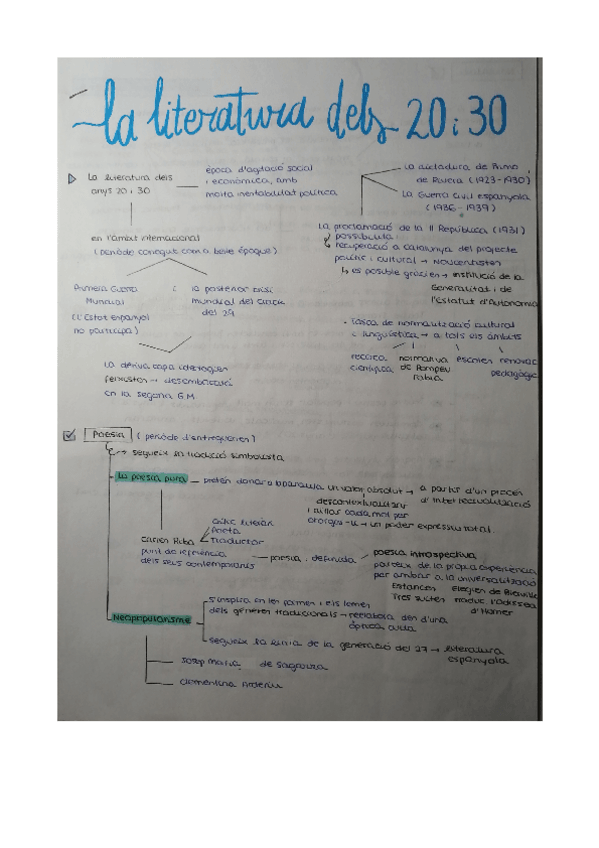 La literatura dels 20 i 30
La literatura dels
anys 20 i 30
època d'agitació social
i econòmica, amb
molta inestabilitat política
La dictadura de Primo
de Rivera (1923-1930)
La Guerra Civil espanyola
(1936-1939)
La proclamació de la II República (1931)
possibilita
recuperació a Catalunya del projecte
polític i cultural → Noucentistes
↳ es possible gràcies → institució de la
Generalitat i de
l'Estatut d'Autonomia
en l'àmbit internacional
(període conegut com a belle époque)
Primera Guerra
Mundial
(L'Estat espanyol
no participa)
i la posterior crisi
mundial del crack
del 29
La deriva capa ideologies
feixistes → desembocació
en la segona G.M
- tasca de normalització cultural
i lingüística → a tots els àmbits
recerca
científica
normativa
de Pompeu
Fabra
escoles
renovac
pedagògic
Poesia (període d'entreguerres)
→ segueix la tradició simbolista
La poesia pura — pretén donar a la paraula un valor absolut → a partir d'un procés
d'intelectualització
descontextualitzar
i aïllar cada mot per
atorgar-li → un poder expressiu total.
Carles Riba
punt de referència
dels seus contemporanis
crític literari
Poeta
Traductor
poesia definida
poesia introspectiva,
parteix de la pròpia experiència
per arribar a la universalització
Estances
Elegies de Bierville
Tres suites
traduc l'odissea
d'Homer
Neopopularisme
s'inspira en les formes i els temes
dels gèneres tradicionals → reelabora des d'una
òptica culta
segueix la línia de la generació del 27 → literatura
espanyola
Josep Maria de Sagarra
Clementina Arderiu